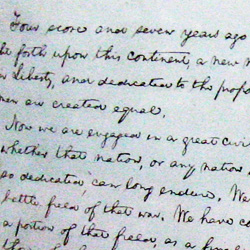 Four score and seven years ago
forth upon this continent, a new
Liberty, and dedicated to this propo
men are created equal.
Now we are engaged in a great civi
whether that nation, or any nation
so dedicated can long endure. We
battle field of that war. We have co
a portion of that field, as a